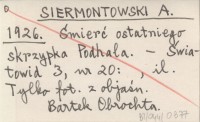 SIERMONTOWSKI A.
1926. Śmierć ostatniego
skrzypka Podhala. – Świa-
towid 3, nr 20: , il.
Tylko fot. z objaśn.
Bartek Obrochta.